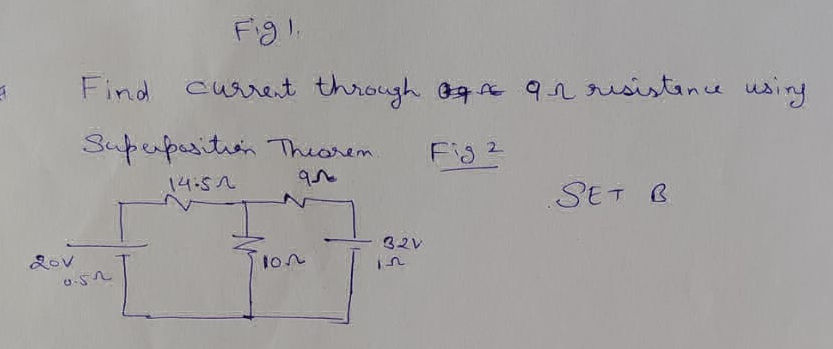 Fig 1.
Find current through 9Ω resistance using
Superposition Theorem. Fig 2
14.5Ω 9Ω
SET B
20V
0.5Ω
10Ω
32V
1Ω